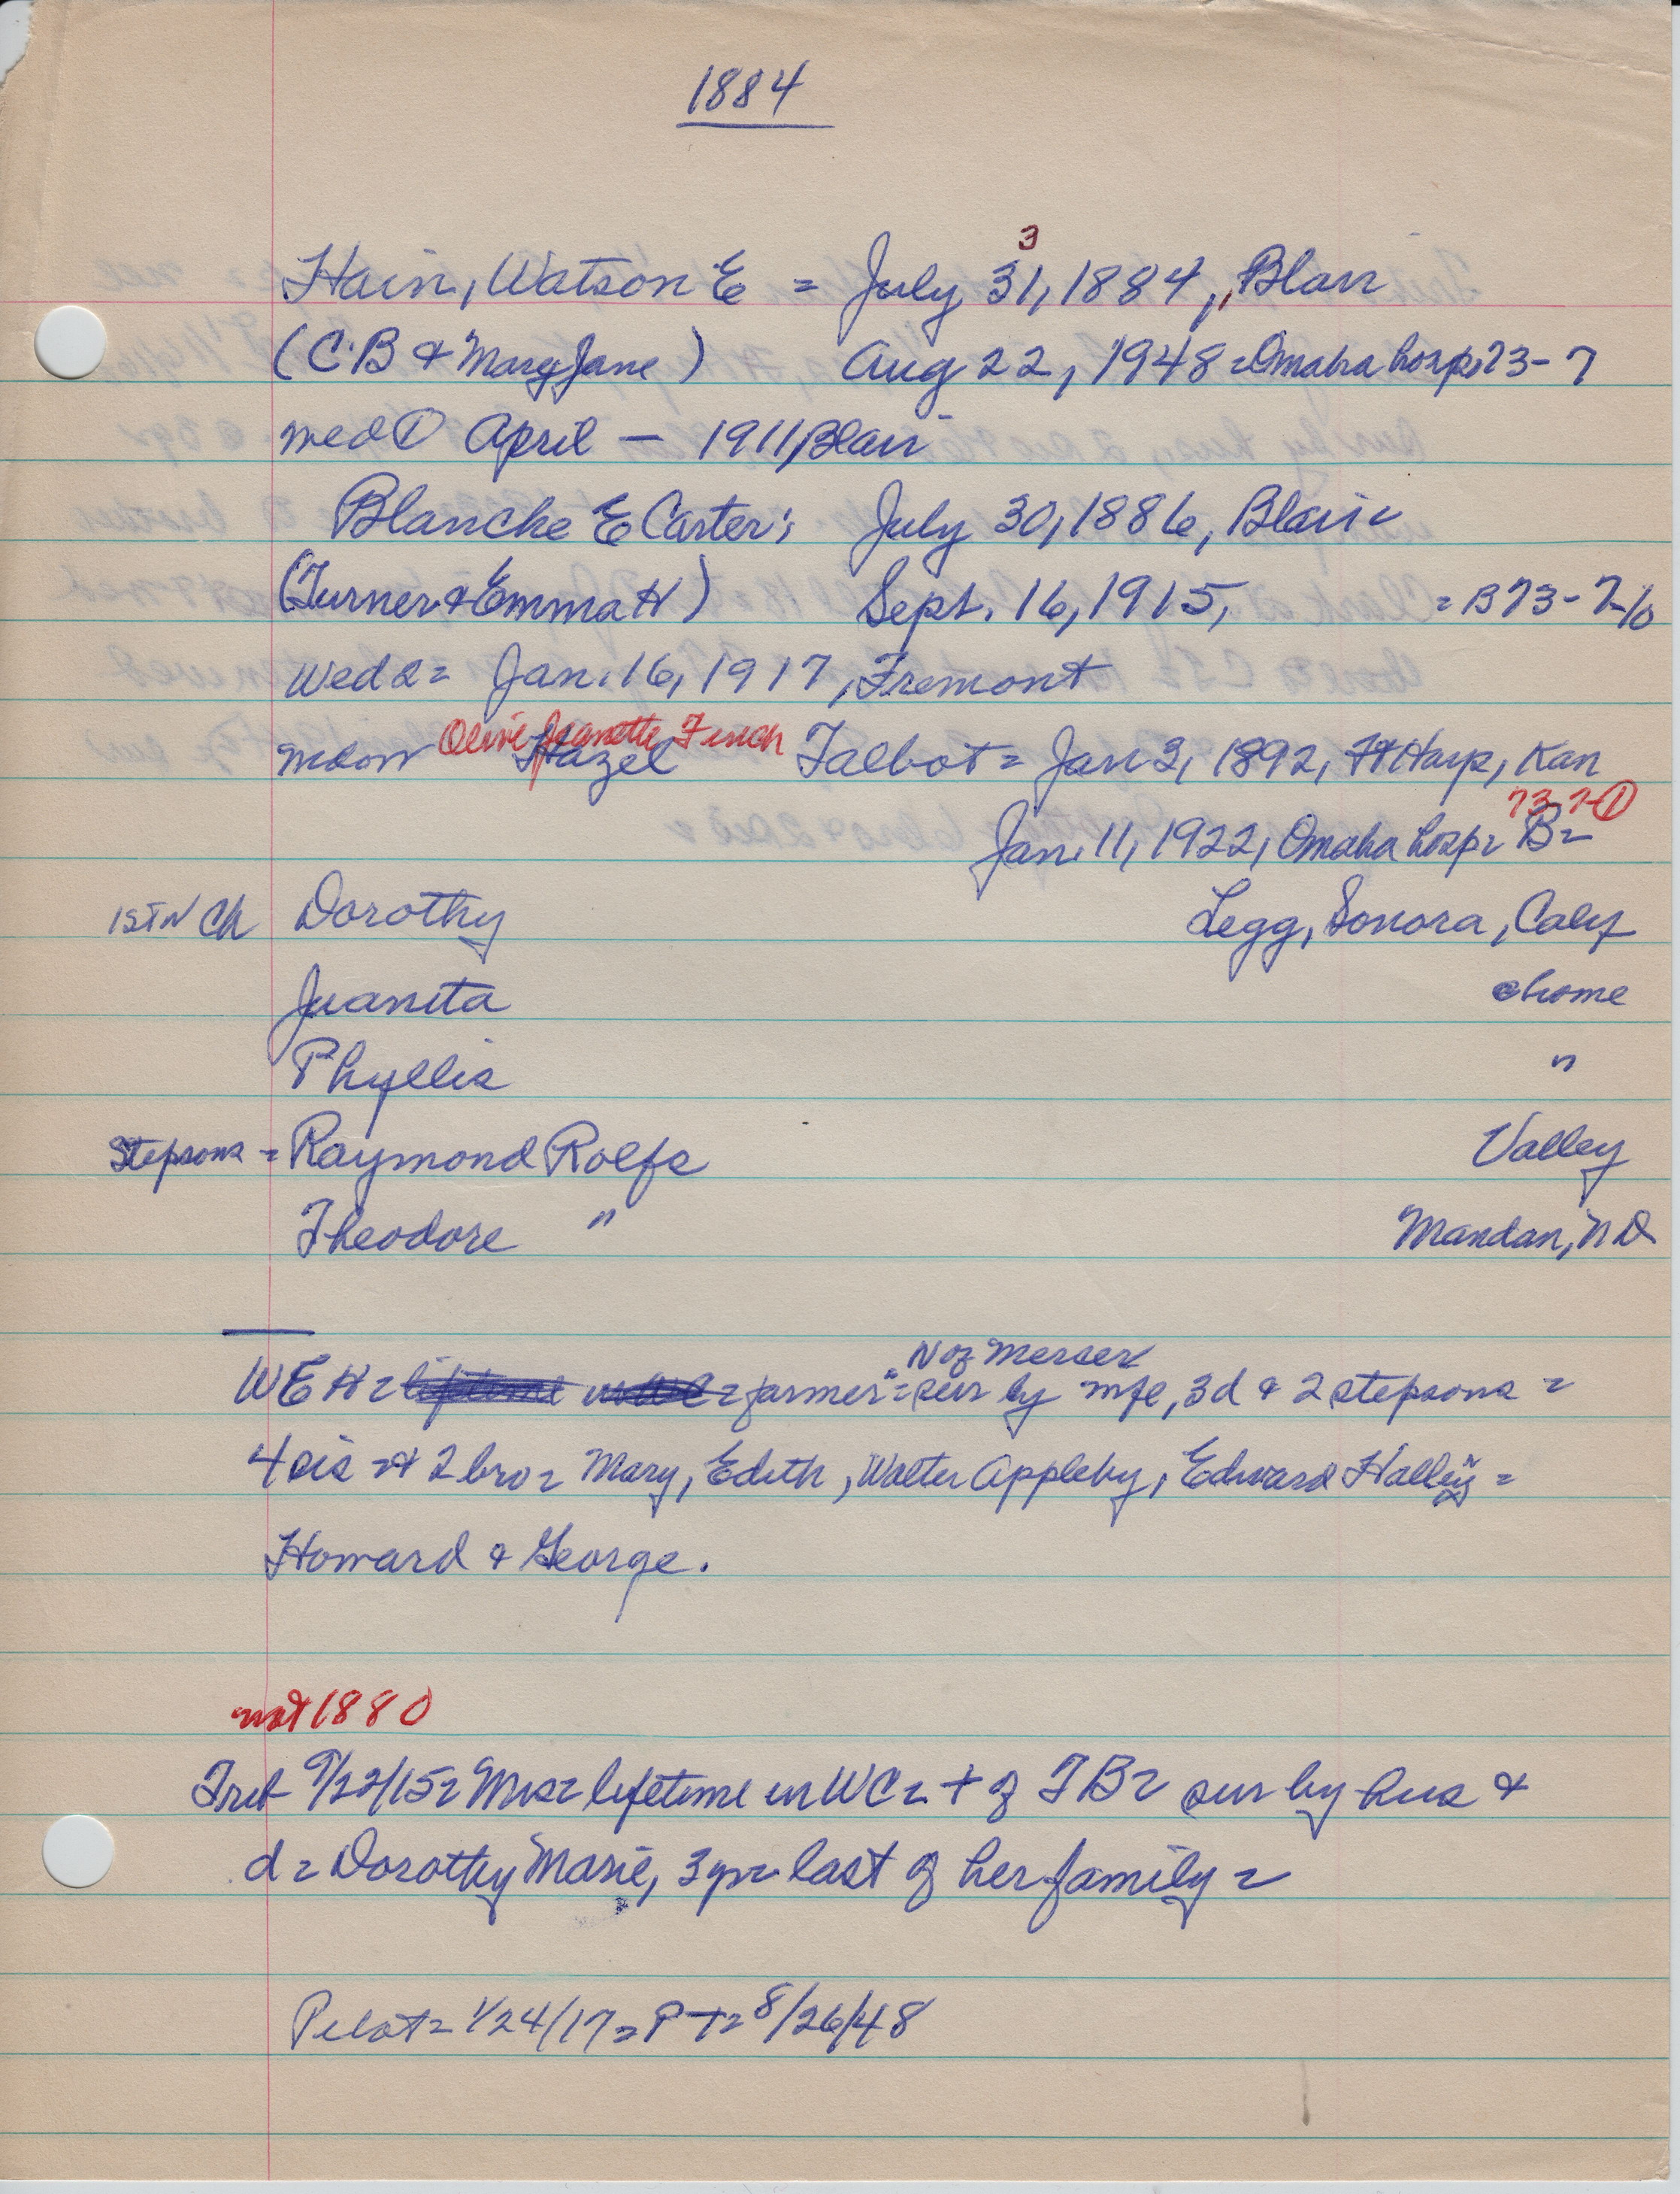 1884
3
Hain, Watson E = July 31, 1884, Blair
(C.B & Mary Jane) Aug 22, 1948 = Omaha hosp = 73-7
wed ① April — 1911, Blair
Blanche E Carter; July 30, 1886, Blair
(Turner & Emma H) Sept. 16, 1915, = B 73-7-10
Wed 2 = Jan. 16, 1917, Fremont
Olive Jeanette Finch
Hazel Talbot = Jan 3, 1892, Ft Harp, Kan
73-7-①
Jan. 11, 1922, Omaha hosp = B =
1ST W Ch Dorothy Legg, Sonora, Calif
Juanita @ home
Phyllis "
Stepsons = Raymond Rolfs Valley
Theodore " Mandan, ND
N of Merser
WEH = farmer = sur by wfe, 3d & 2 stepsons =
4 sis & 2 bro = Mary, Edith, Walter Appleby, Edward Halley =
Howard & George.
not 1880
Trib 9/22/15 = Mrs = lifetime in WC = + of TB = sur by hus &
d = Dorothy Marie, 3 yr = last of her family =
Pilot = 1/24/17 = PT = 8/26/48